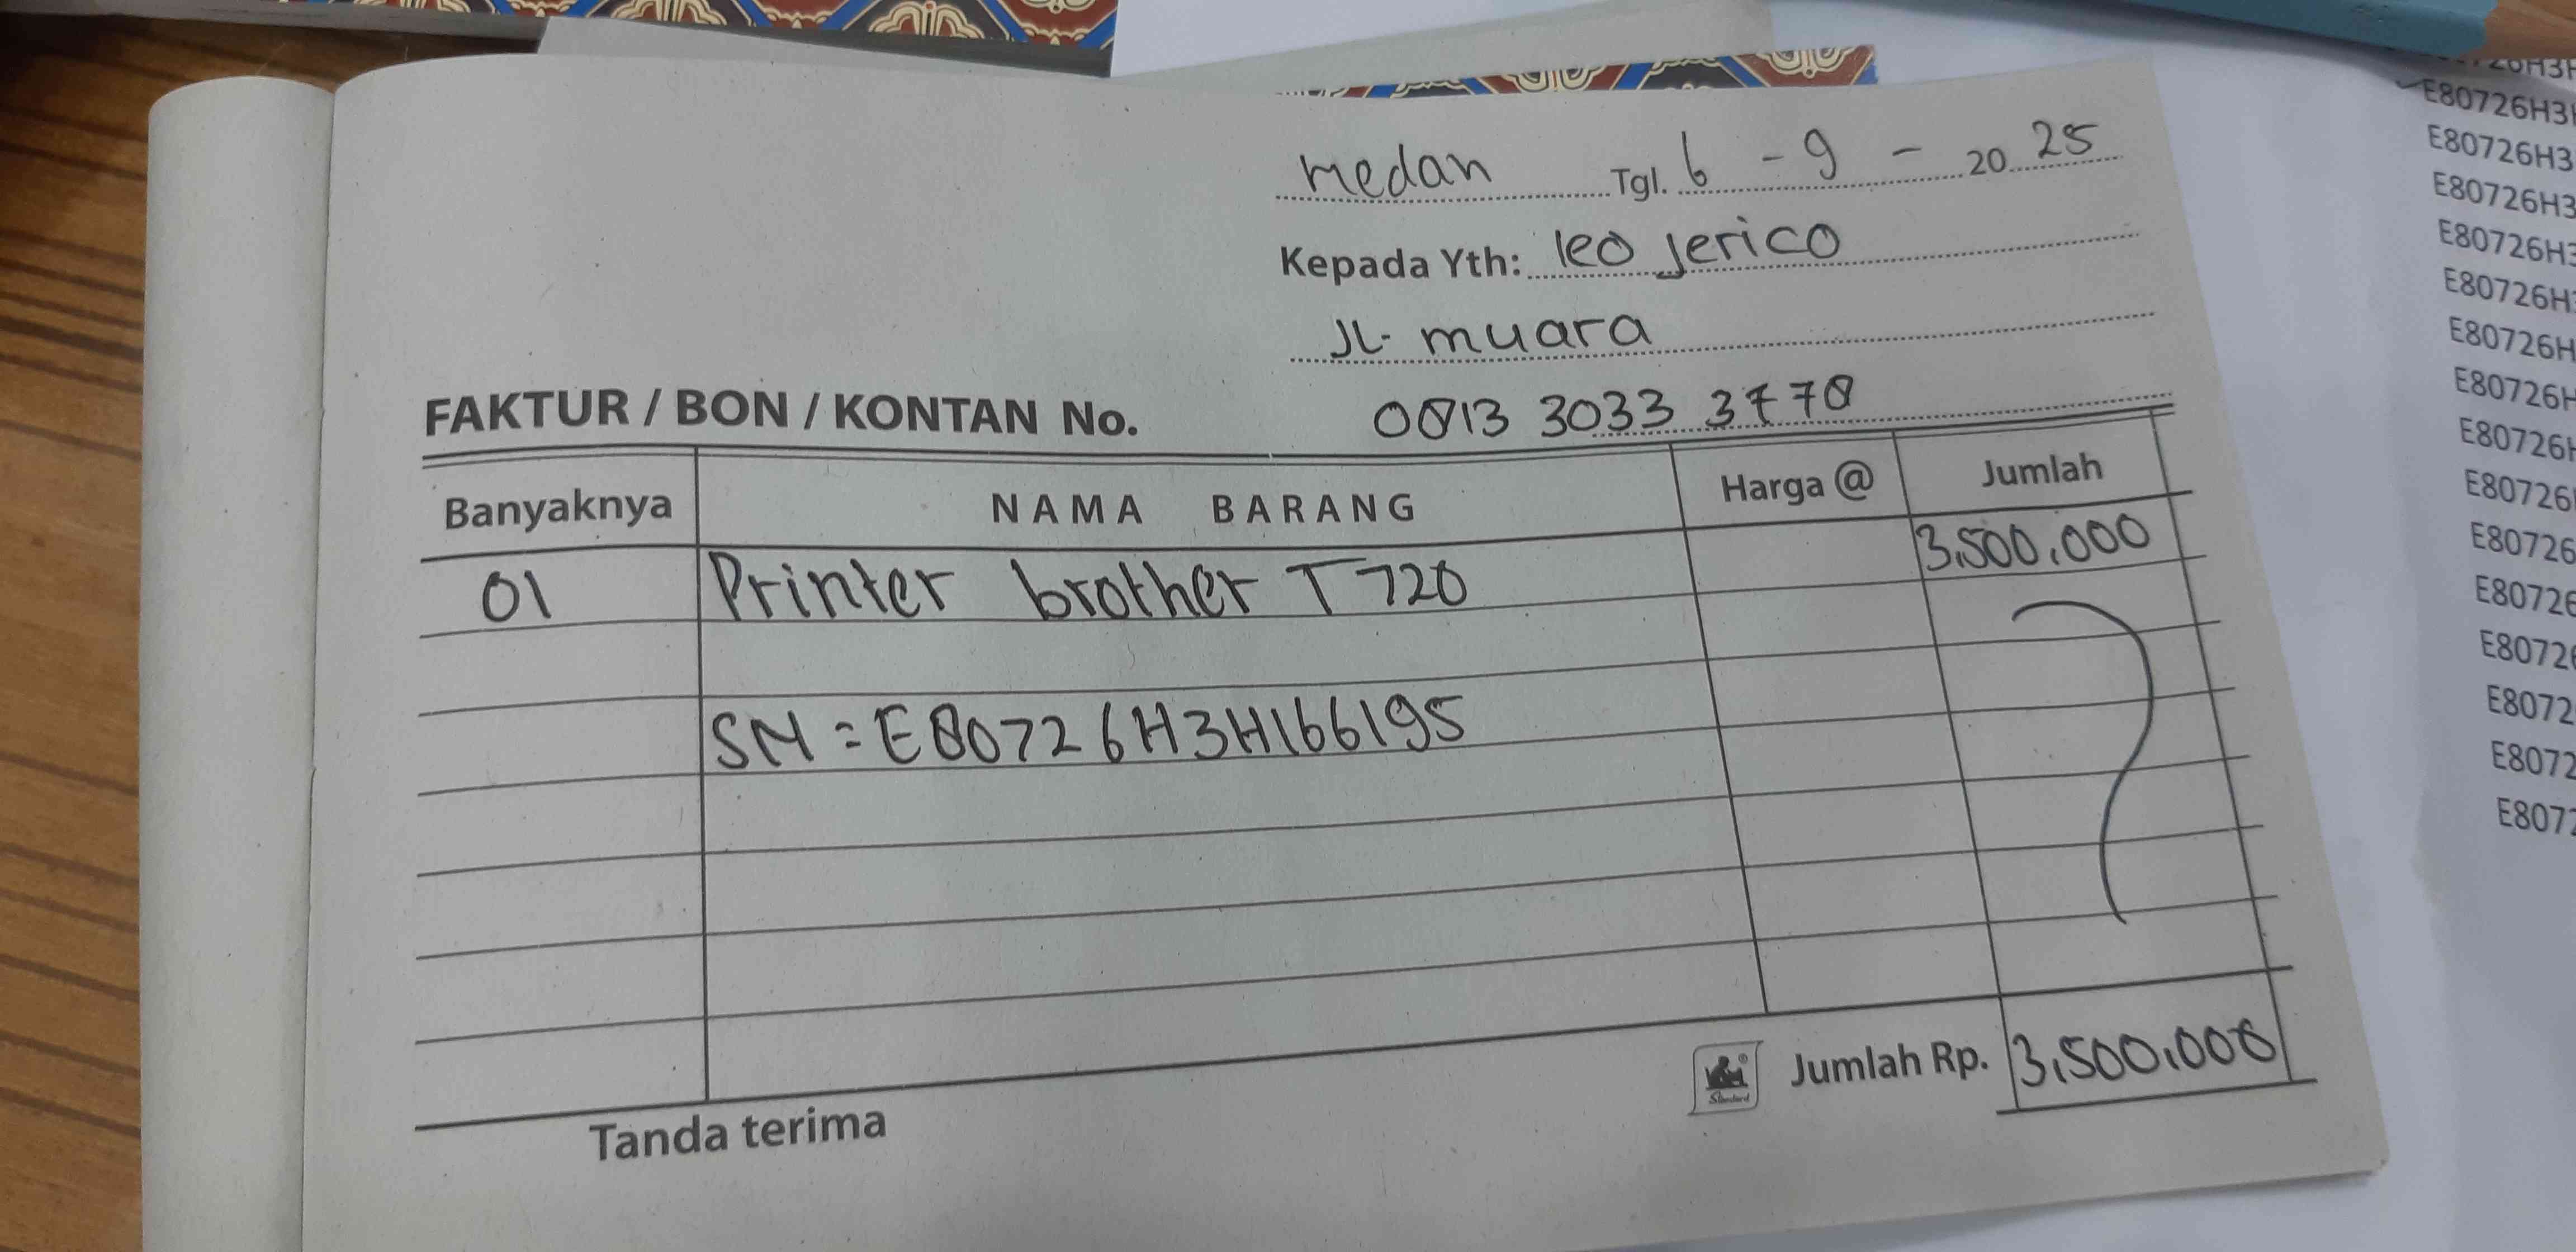 Medan Tgl. 6 - 9 - 20 25
Kepada Yth: leo Jerico
JL. muara
FAKTUR / BON / KONTAN No. 0813 3033 3778
Banyaknya NAMA BARANG Harga @ Jumlah
01 Printer brother T 720 3.500.000
SN = E80726H3H166195
Jumlah Rp. 3.500.000
Standard
Tanda terima
E80726H3
E80726H3
E80726H3
E80726H3
E80726H
E80726H
E80726H
E80726H
E80726
E80726
E80726
E8072
E8072
E8072
E807